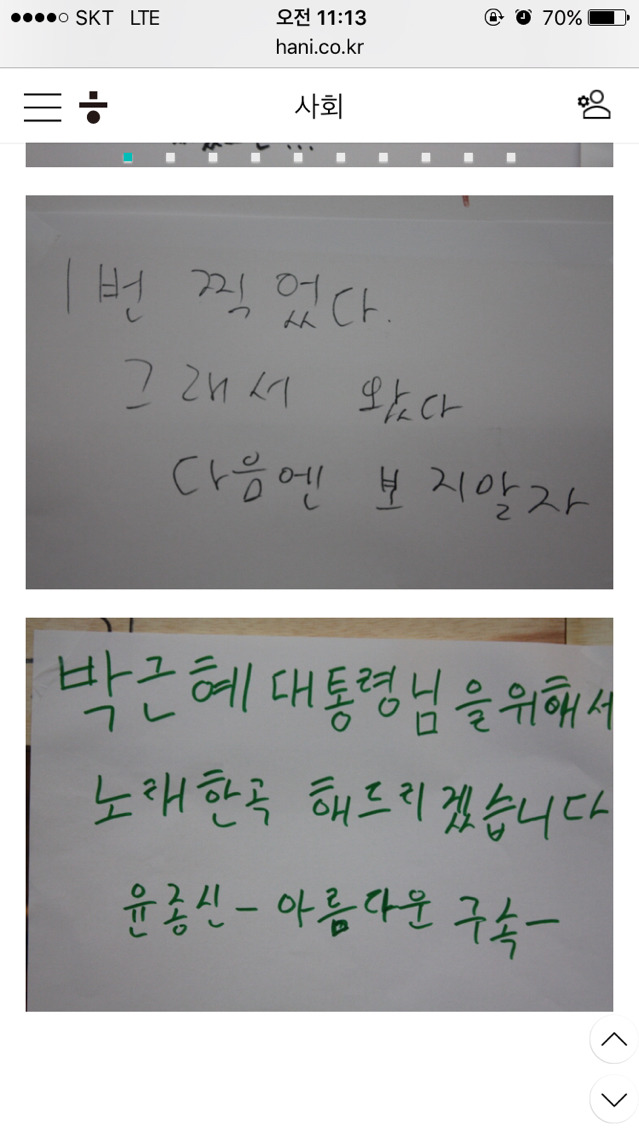 SKT LTE 오전 11:13 70%
hani.co.kr
사회
1번 찍었다.
그래서 왔다
다음엔 보지말자
박근혜 대통령님을위해서
노래한곡 해드리겠습니다
윤종신-아름다운 구속-